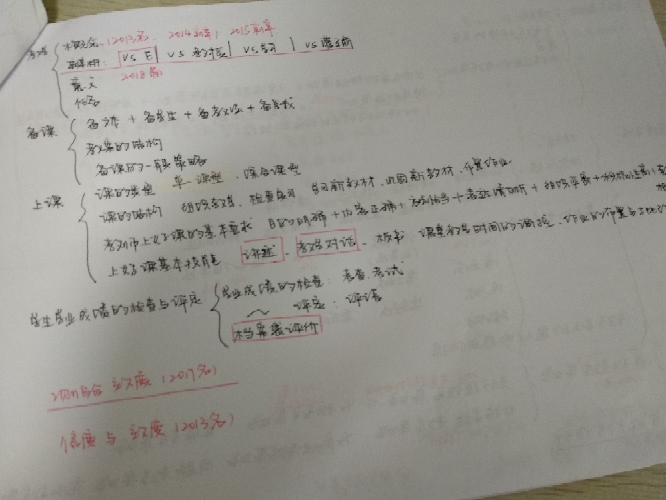 教学 概念 (2013名, 2014辨, 2015辨
辨析: VS E | VS | VS 学习 | VS
意义 2018简
任务
备课 备书本 + 备学生 + 备教法 + 备自我
教案的结构
备课的一般策略
上课 课的类型 单一课型、综合课型
课的结构 组织教学、检查复习、学习新教材、巩固新教材、布置作业
教师上好课的基本要求 目的明确 + 内容正确 + 方法恰当 + 表达清晰 + 组织严密 +
上好课基本技能 讲述、教学对话、板书、课堂教学时间的调控、作业的布置与
学生学业成绩的检查与评定 学业成绩的检查: 考查、考试
~ 评定: 评语
档案袋评价
效度 (2017名)
信度与效度 (2013名)